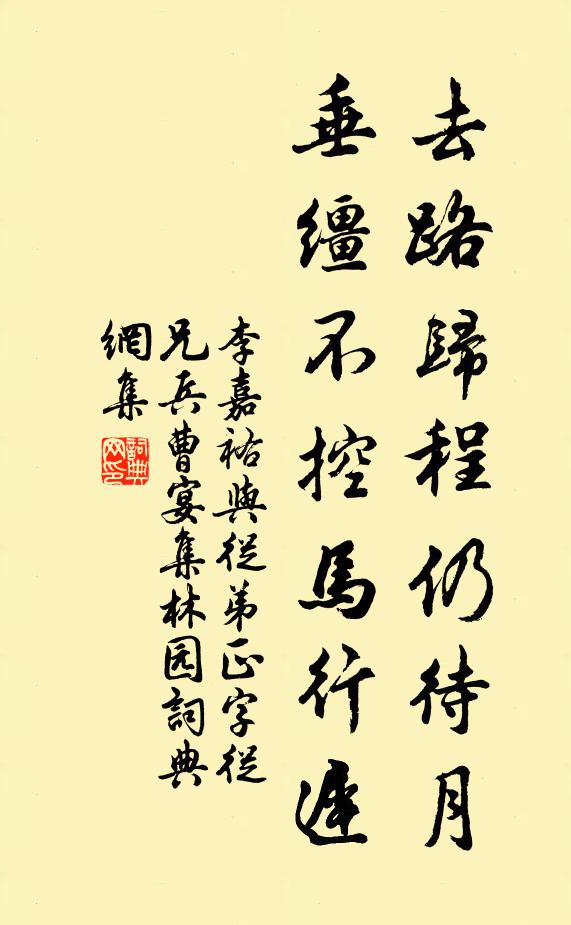 去路歸程仍待月
垂繮不控馬行遲
李嘉祐與從弟正字從
兄兵曹宴集林园詞典
網集
詞典
网印